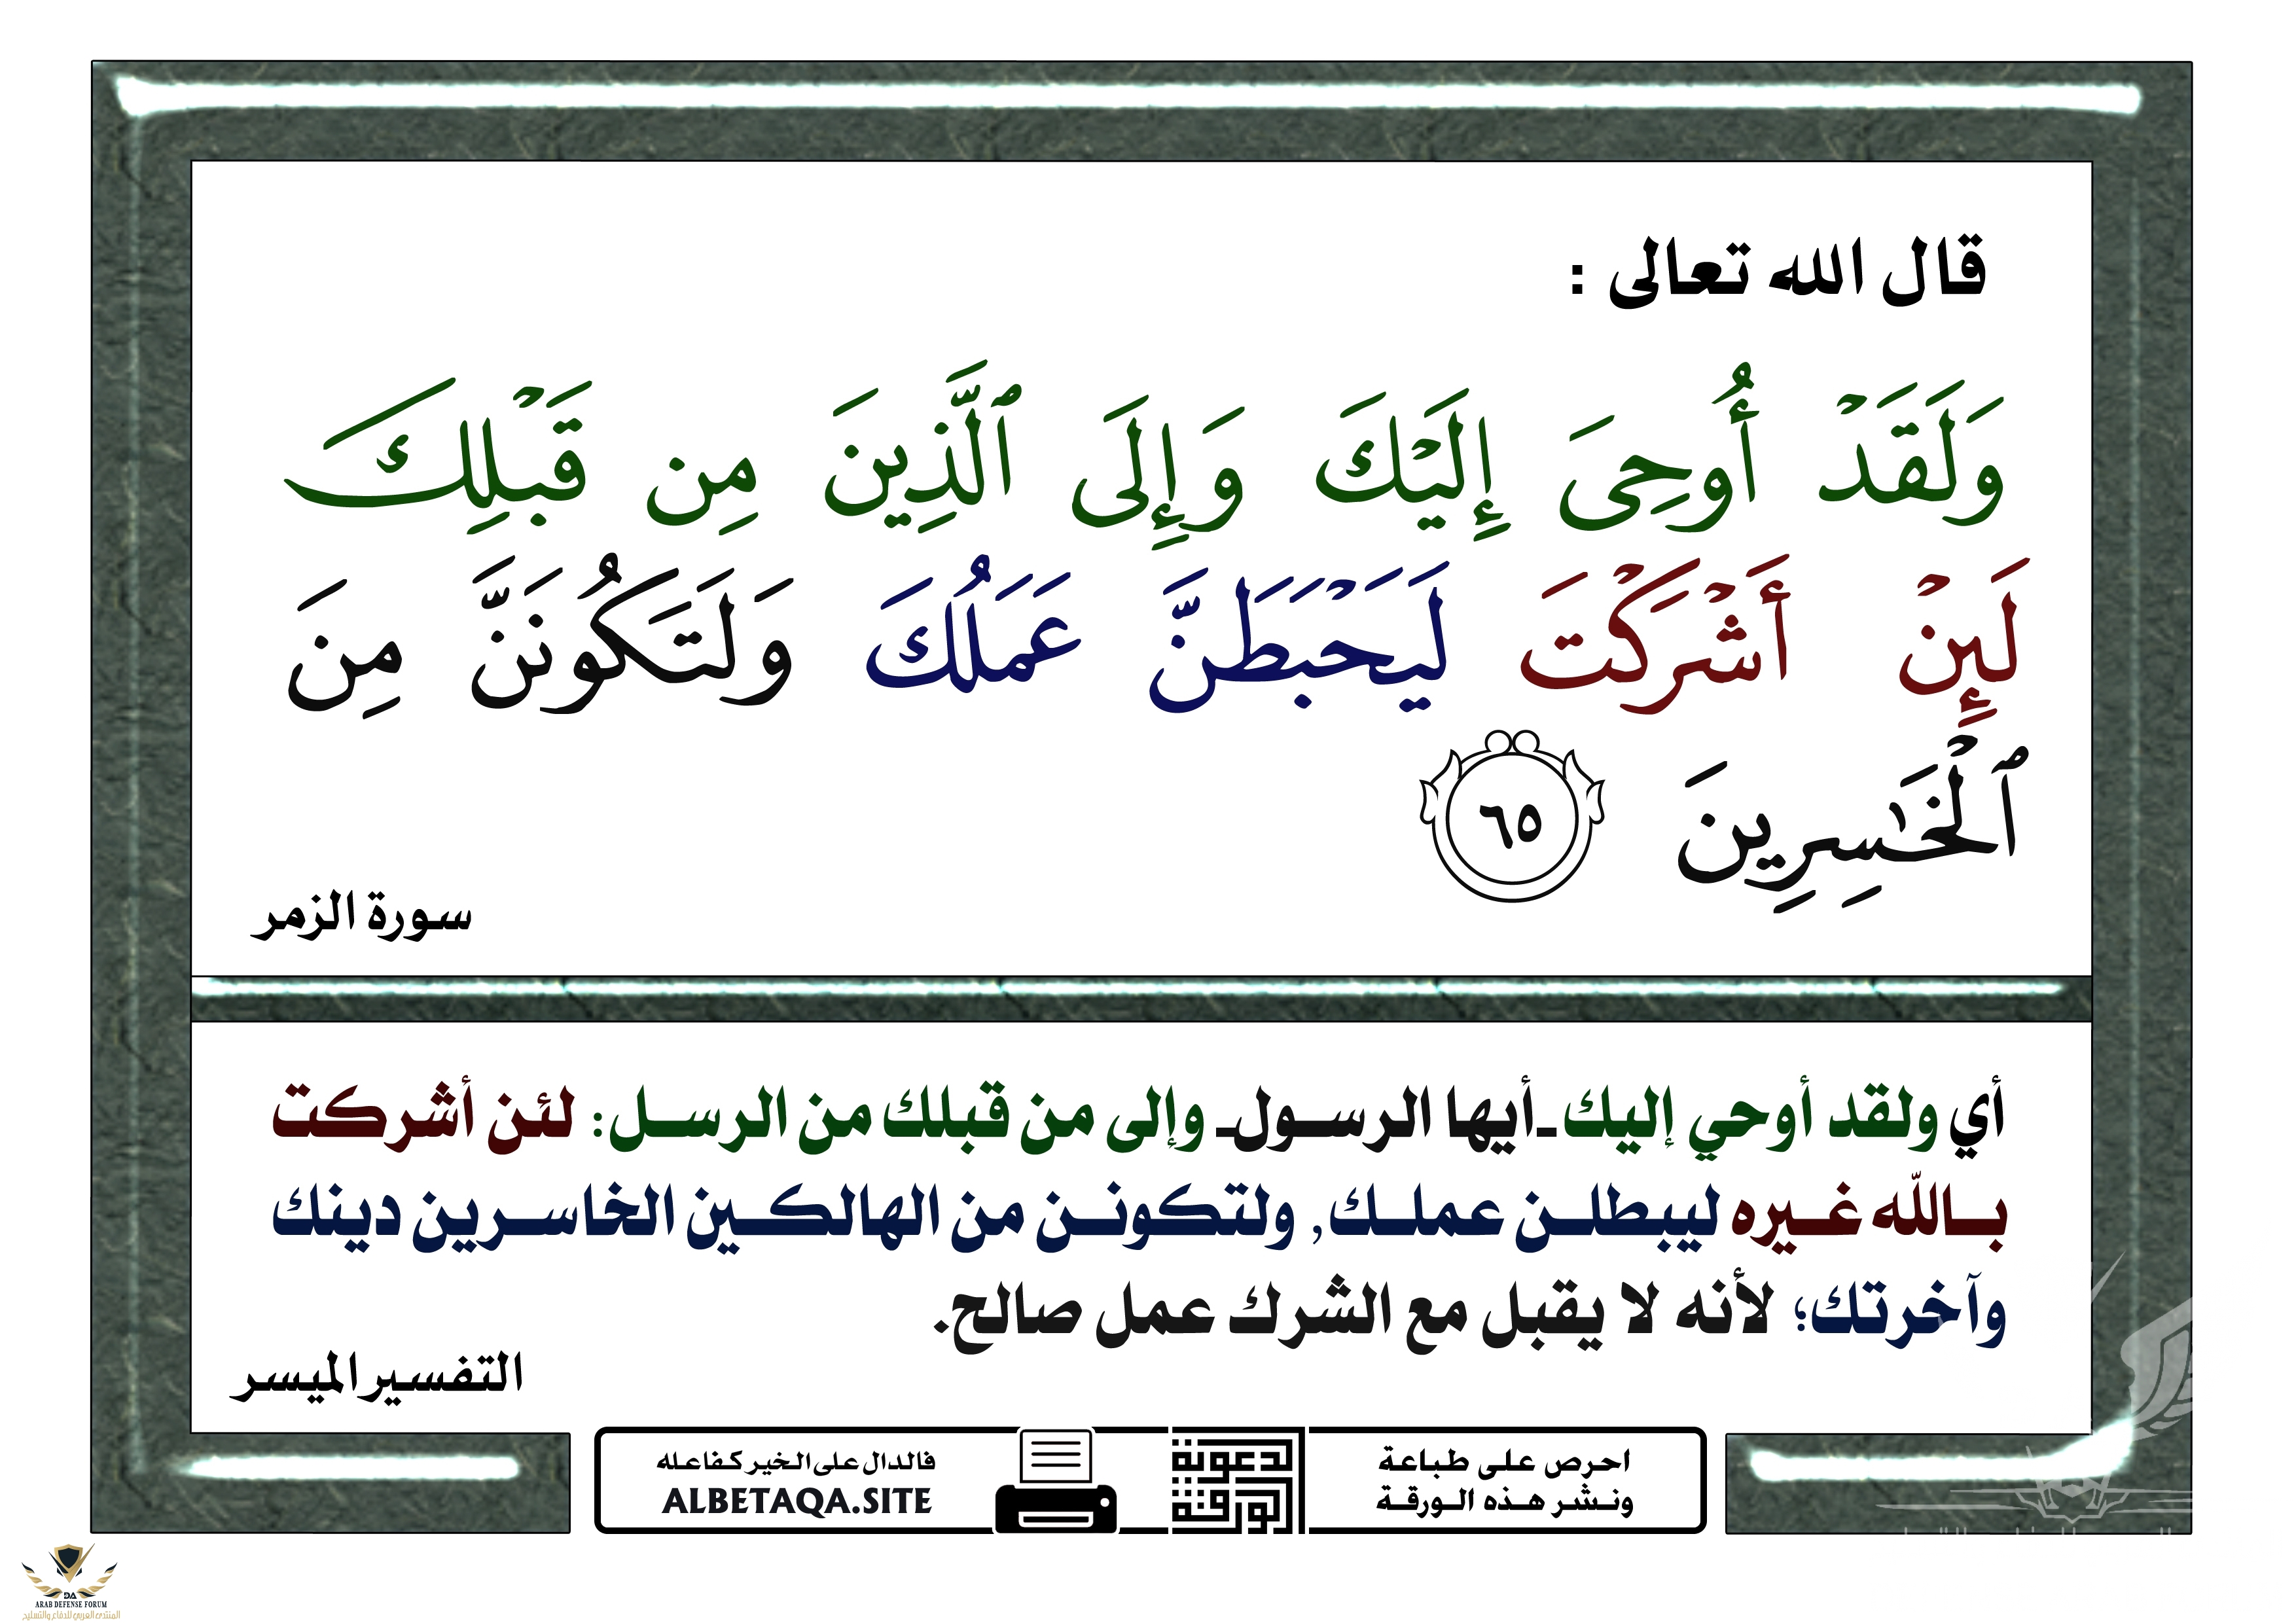 قال الله تعالى :
وَلَقَدۡ أُوحِيَ إِلَيۡكَ وَإِلَى ٱلَّذِينَ مِن قَبۡلِكَ
لَئِنۡ أَشۡرَكۡتَ لَيَحۡبَطَنَّ عَمَلُكَ وَلَتَكُونَنَّ مِنَ
ٱلۡخَٰسِرِينَ ٦٥
سورة الزمر
أي ولقد أوحي إليك ـ أيها الرسول ـ وإلى من قبلك من الرسل: لئن أشركت
بالله غيره ليبطلن عملك, ولتكونن من الهالكين الخاسرين دينك
وآخرتك؛ لأنه لا يقبل مع الشرك عمل صالح.
التفسير الميسر
احرص على طباعة
ونشر هذه الورقة
الورقة
الدعوية
فالدال على الخير كفاعله
ALBETAQA.SITE
DA
ARAB DEFENSE FORUM
المنتدى العربي للدفاع والتسليح